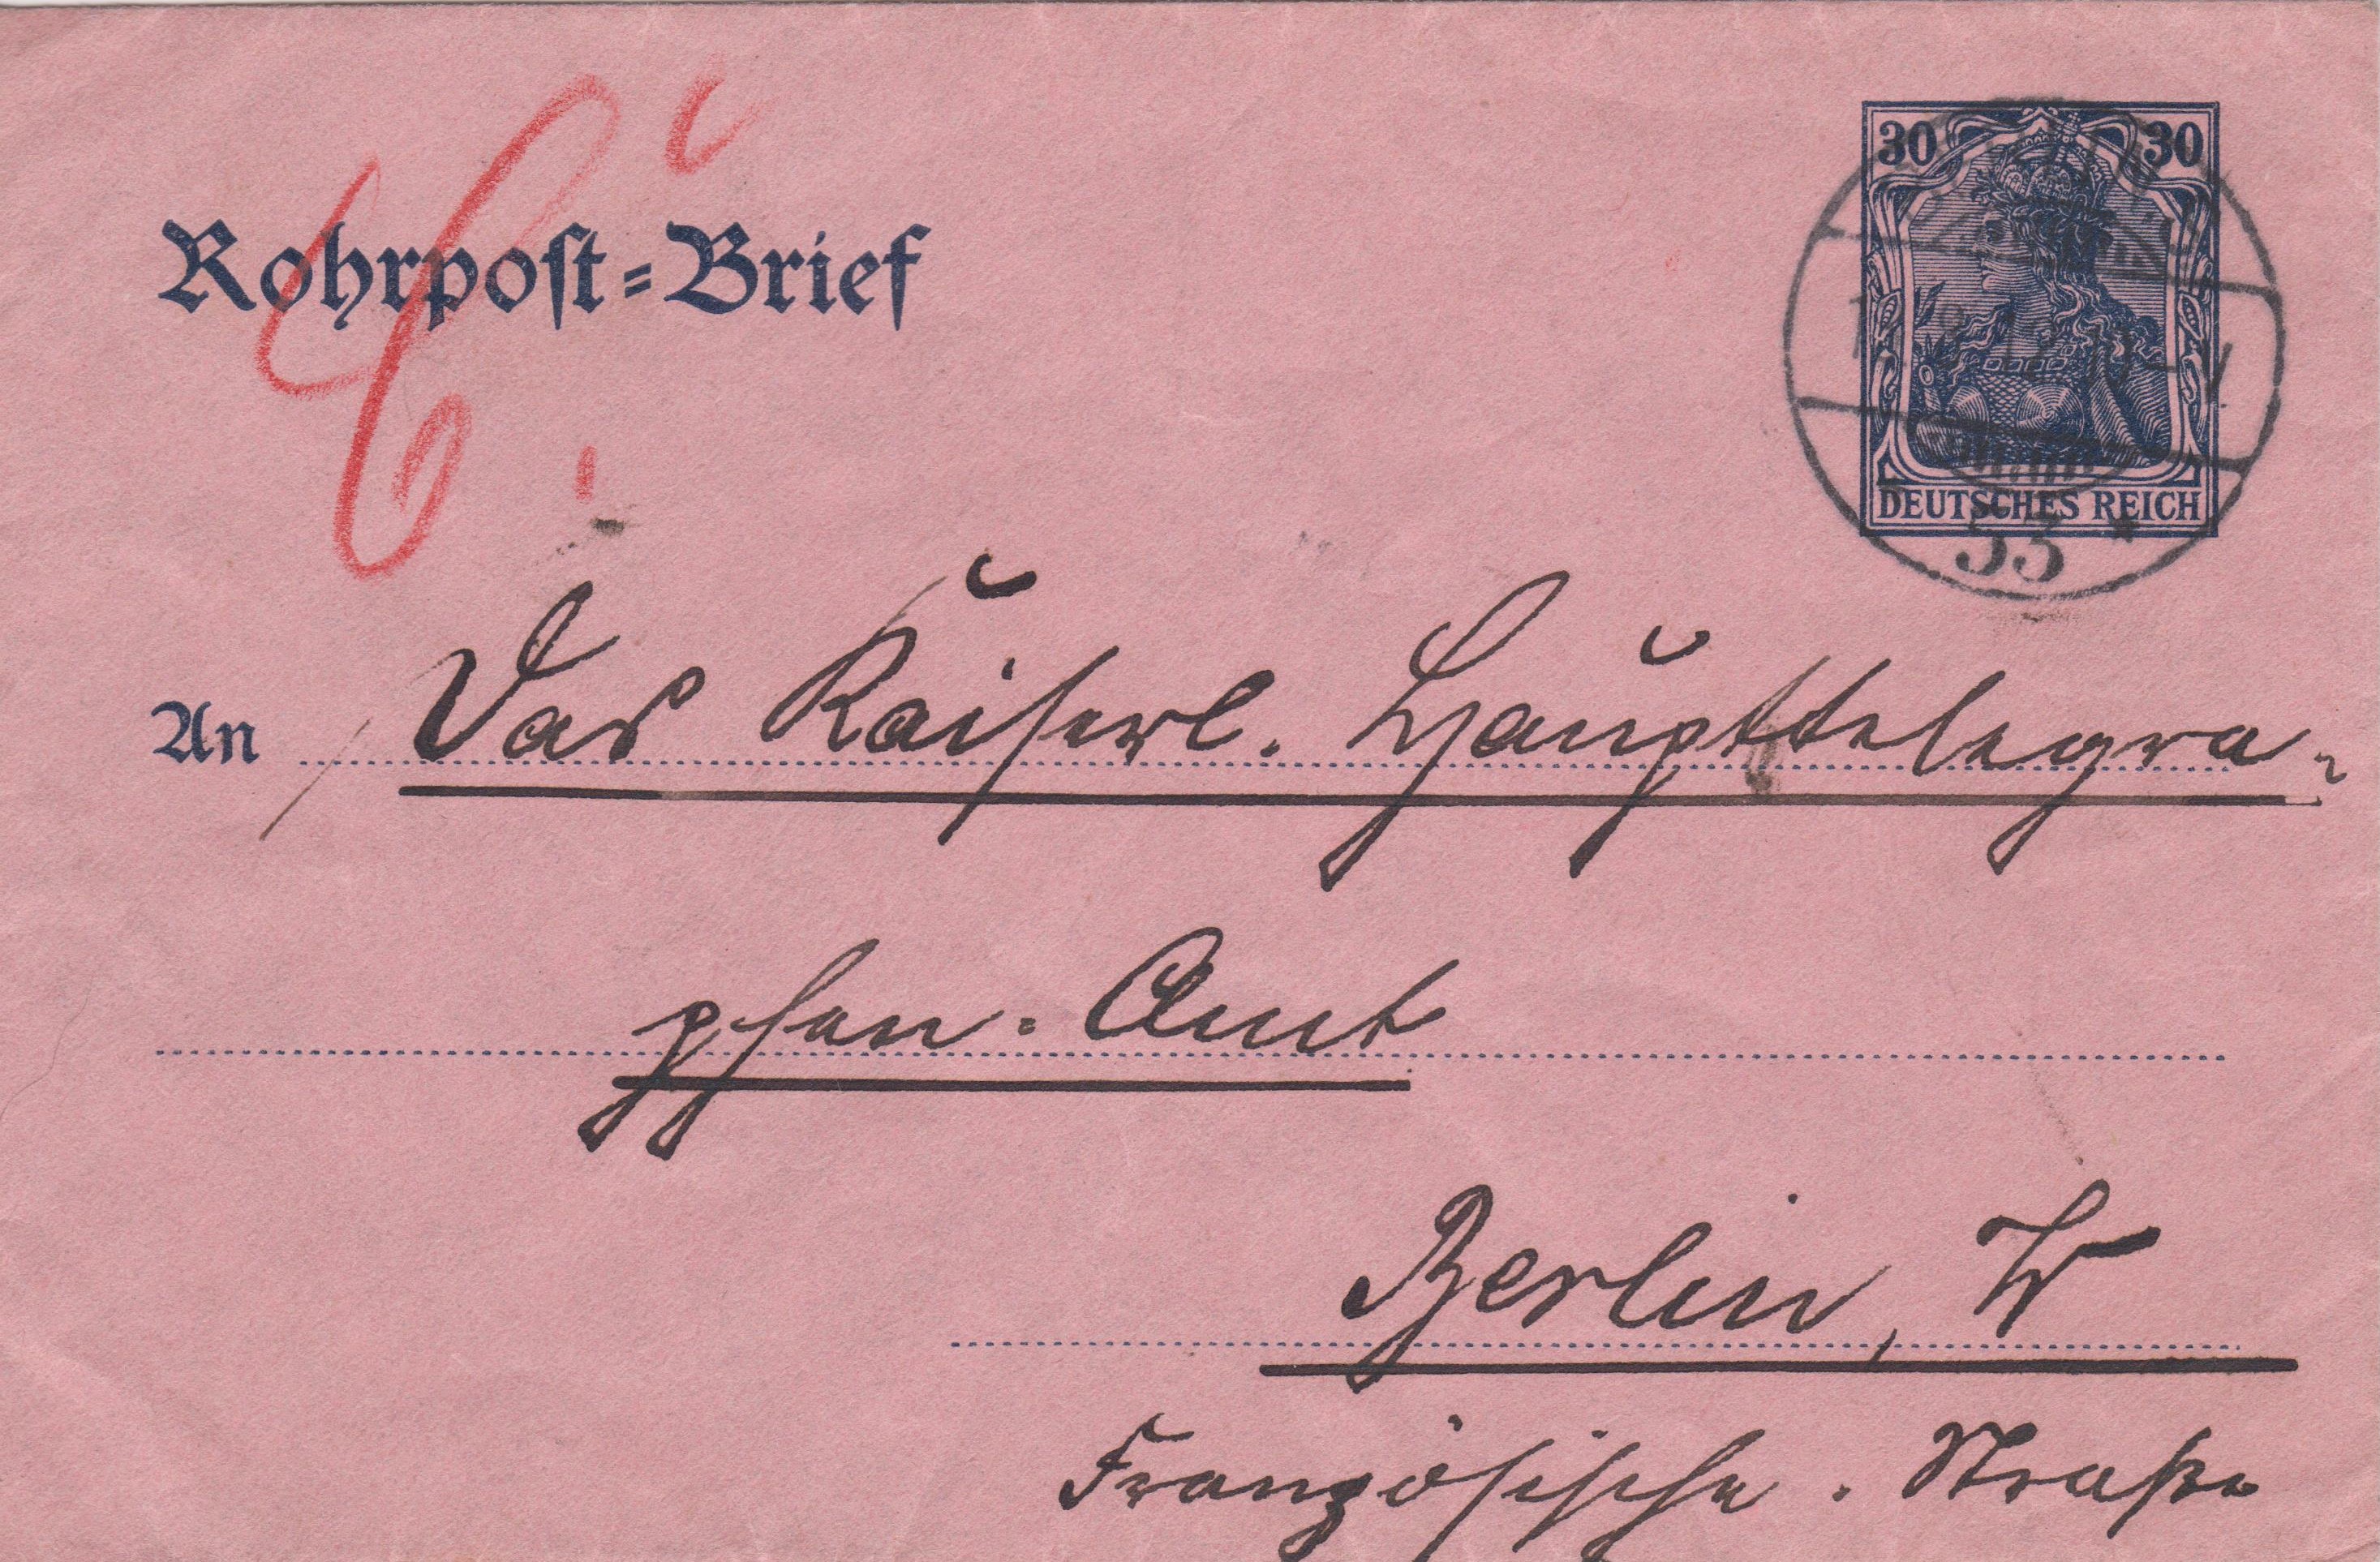 30 30
Rohrpost-Brief
DEUTSCHES REICH
53 *
An Das Kaiserl. Haupttelegra-
phen-Amt
Berlin, W
Französische-Straße